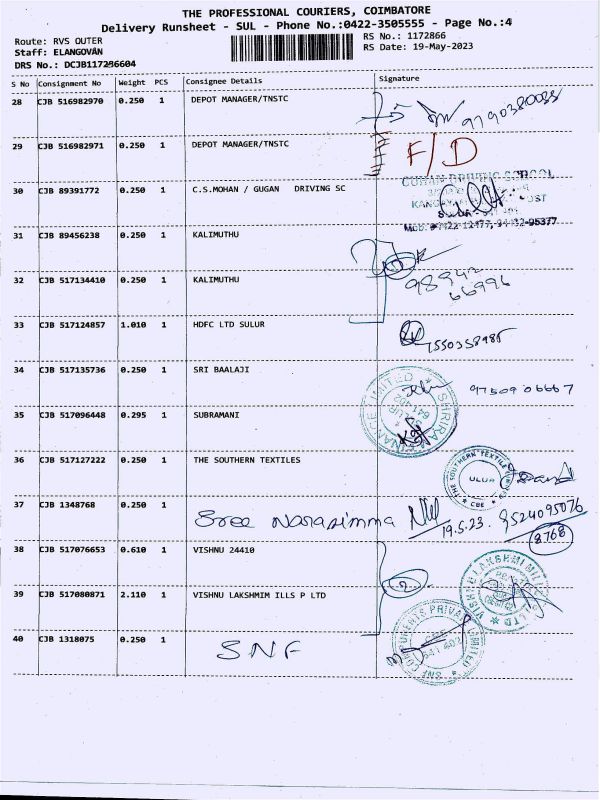 THE PROFESSIONAL COURIERS, COIMBATORE
Delivery Runsheet - SUL - Phone No.:0422-3505555 - Page No.:4
Route: RVS OUTER
Staff: ELANGOVAN
DRS No.: DCJB117286604
RS No.: 1172866
RS Date: 19-May-2023
S No Consignment No Weight PCS Consignee Details Signature
28 CJB 516982970 0.250 1 DEPOT MANAGER/TNSTC
29 CJB 516982971 0.250 1 DEPOT MANAGER/TNSTC F/D
30 CJB 89391772 0.250 1 C.S.MOHAN / GUGAN DRIVING SC
31 CJB 89456238 0.250 1 KALIMUTHU
32 CJB 517134410 0.250 1 KALIMUTHU 98942
66996
33 CJB 517124857 1.010 1 HDFC LTD SULUR
34 CJB 517135736 0.250 1 SRI BAALAJI
35 CJB 517096448 0.295 1 SUBRAMANI
36 CJB 517127222 0.250 1 THE SOUTHERN TEXTILES
THE SOUTHERN TEXTILES
CBE
37 CJB 1348768 0.250 1 Sree Narasimma 19.5.23. 9524095076
8768
38 CJB 517076653 0.610 1 VISHNU 24410
2
39 CJB 517080871 2.110 1 VISHNU LAKSHMIM ILLS P LTD
VISHNU LAKSHMI MILLS P LTD
40 CJB 1318075 0.250 1 SNF
SNF COMPONENTS PRIVATE LIMITED
641 402